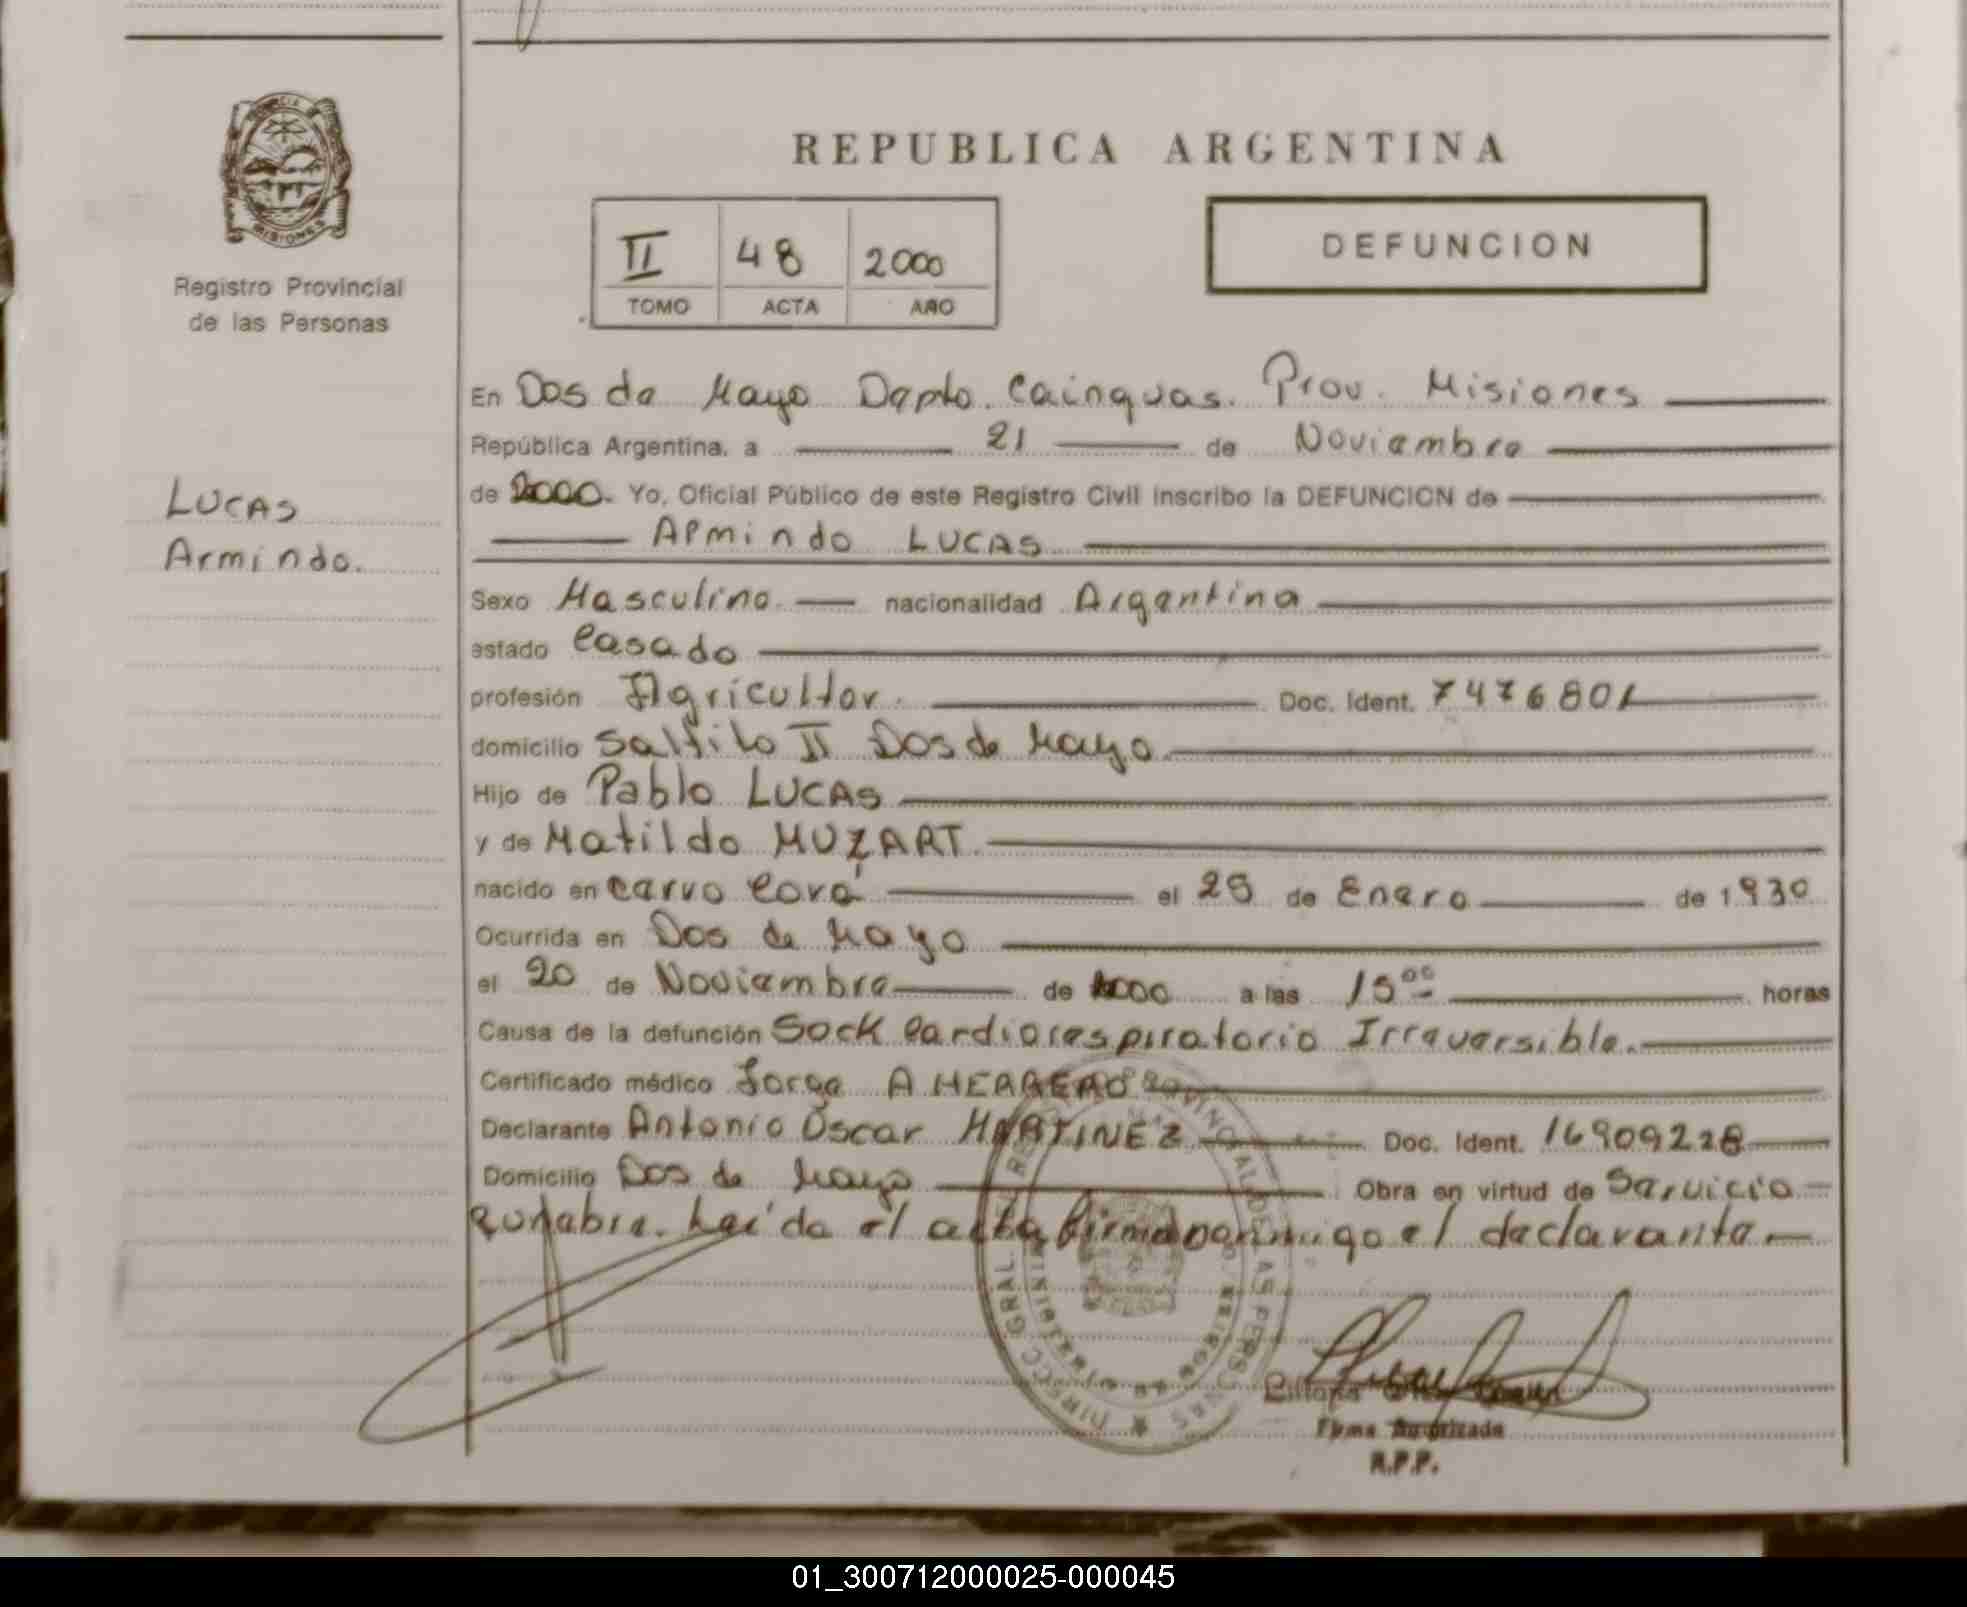 REPUBLICA ARGENTINA
MISIONES
Registro Provincial
de las Personas
II 48 2000
TOMO ACTA AÑO
DEFUNCION
LUCAS
Armindo.
En Dos de Mayo Depto. Cainguas. Prov. Misiones
República Argentina, a 21 de Noviembre
de 2000. Yo, Oficial Público de este Registro Civil inscribo la DEFUNCION de
Armindo LUCAS
Sexo Masculino nacionalidad Argentina
estado Casado
profesión Agricultor. Doc. Ident. 7476801
domicilio Saltito II Dos de Mayo
Hijo de Pablo LUCAS
y de Matildo MUZART
nacido en Carvo Corá el 25 de Enero de 1930
Ocurrida en Dos de Mayo
el 20 de Noviembre de 2000 a las 15 00 horas
Causa de la defunción Sock Cardiorespiratorio Irreversible.
Certificado médico Jorge A HERRERO
Declarante Antonio Oscar MARTINEZ Doc. Ident. 16909228
Domicilio Dos de Mayo Obra en virtud de Servicio
Funebre. Leído el acta firma conmigo el declarante
Firma Autorizada
R.P.P.
01_300712000025-000045